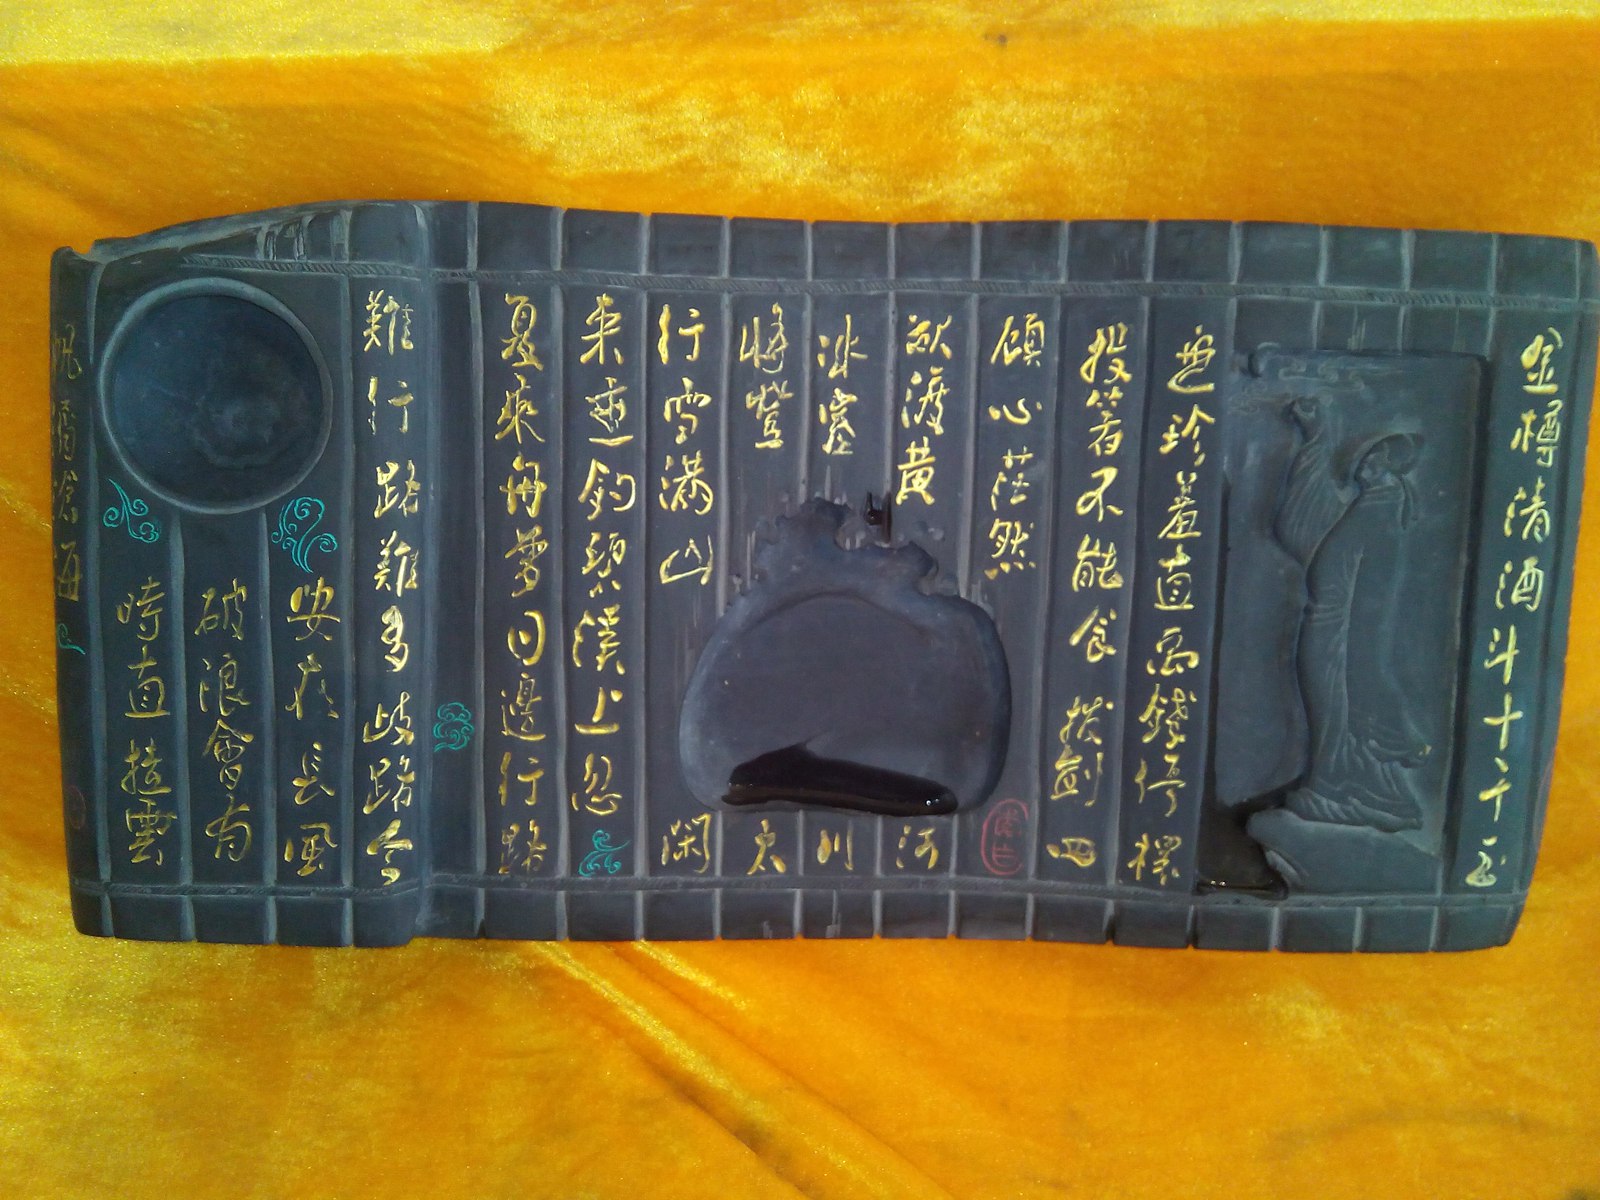 金樽清酒斗十千玉
盤珍羞直萬錢停杯
投箸不能食拔劍四
顧心茫然
欲渡黃河
冰塞川
將登太
行雪滿山閑
來垂釣碧溪上忽
夏乘舟夢日邊行路
難行路難多歧路今
安在長風
破浪會有
時直挂雲
帆濟滄海